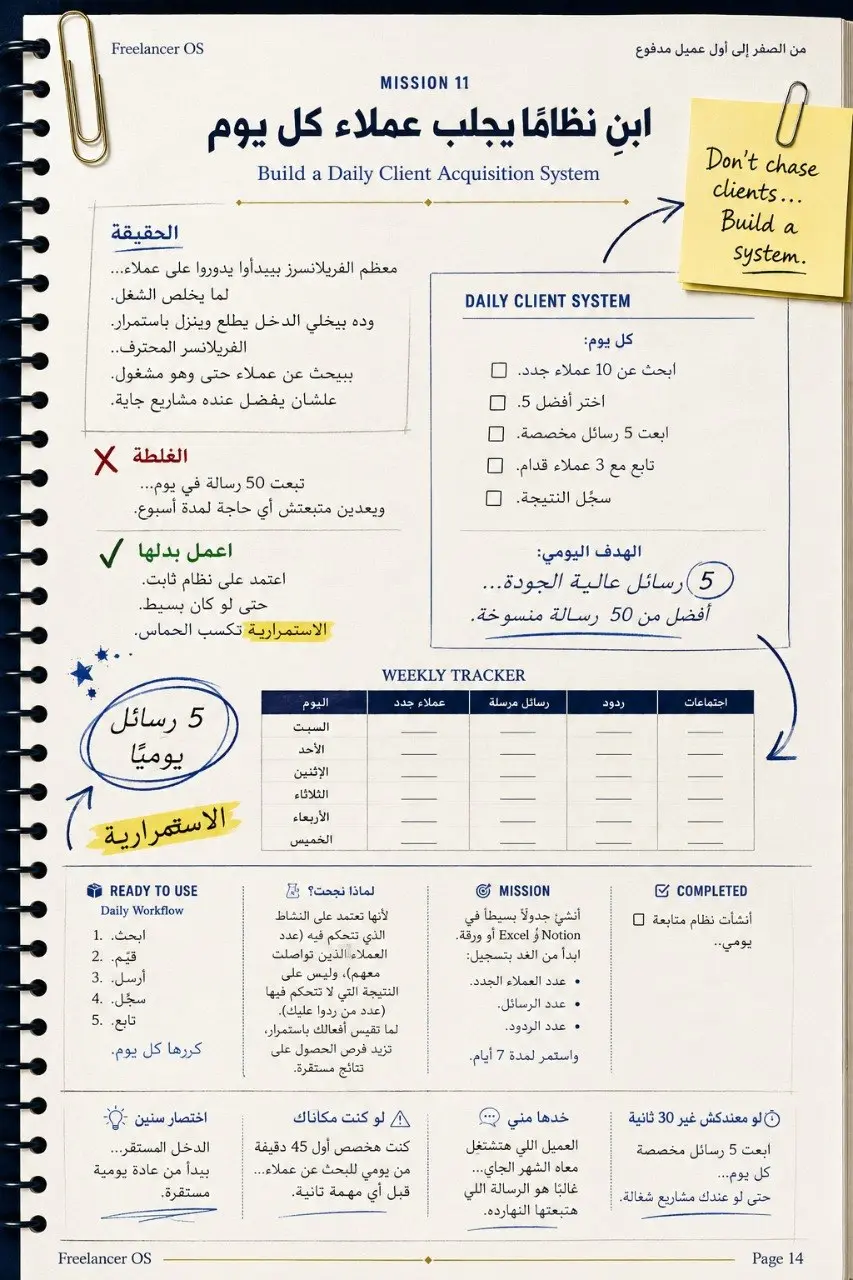 Freelancer OS
من الصفر إلى أول عميل مدفوع
MISSION 11
ابنِ نظامًا يجلب عملاء كل يوم
Build a Daily Client Acquisition System
Don't chase
clients...
Build a
system.
الحقيقة
معظم الفريلانسرز بيبدأوا يدوروا على عملاء...
لما يخلص الشغل.
وده بيخلي الدخل يطلع وينزل باستمرار.
الفريلانسر المحترف..
بيبحث عن عملاء حتى وهو مشغول.
علشان يفضل عنده مشاريع جاية.
الغلطة
تبعت 50 رسالة في يوم...
وبعدين متبعتش أي حاجة لمدة أسبوع.
اعمل بدلها
اعتمد على نظام ثابت.
حتى لو كان بسيط.
الاستمرارية تكسب الحماس.
DAILY CLIENT SYSTEM
كل يوم:
ابحث عن 10 عملاء جدد.
اختر أفضل 5.
ابعت 5 رسائل مخصصة.
تابع مع 3 عملاء قدام.
سجّل النتيجة.
الهدف اليومي:
5 رسائل عالية الجودة...
أفضل من 50 رسالة منسوخة.
5 رسائل
يوميًا
الاستمرارية
WEEKLY TRACKER
اليوم عملاء جدد رسائل مرسلة ردود اجتماعات
السبت
الأحد
الإثنين
الثلاثاء
الأربعاء
الخميس
READY TO USE
Daily Workflow
1. ابحث.
2. قيّم.
3. أرسل.
4. سجّل.
5. تابع.
كررها كل يوم.
لماذا نجحت؟
لأنها تعتمد على النشاط
الذي تتحكم فيه (عدد
العملاء الذين تواصلت
معهم)، وليس على
النتيجة التي لا تتحكم فيها
(عدد من ردوا عليك).
لما تقيس أفعالك باستمرار،
تزيد فرص الحصول على
نتائج مستقرة.
MISSION
أنشئ جدولًا بسيطًا في
Notion أو Excel أو ورقة.
ابدأ من الغد بتسجيل:
• عدد العملاء الجدد.
• عدد الرسائل.
• عدد الردود.
واستمر لمدة 7 أيام.
COMPLETED
أنشأت نظام متابعة
يومي..
اختصار سنين
الدخل المستقر...
بيدأ من عادة يومية
مستقرة.
لو كنت مكاناك
كنت هخصص أول 45 دقيقة
من يومي للبحث عن عملاء...
قبل أي مهمة تانية.
خدها مني
العميل اللي هتشتغل
معاه الشهر الجاي...
غالبًا هو الرسالة اللي
هتبعتها النهارده.
لو معندكش غير 30 ثانية
ابعت 5 رسائل مخصصة
كل يوم...
حتى لو عندك مشاريع شغالة.
Freelancer OS
Page 14